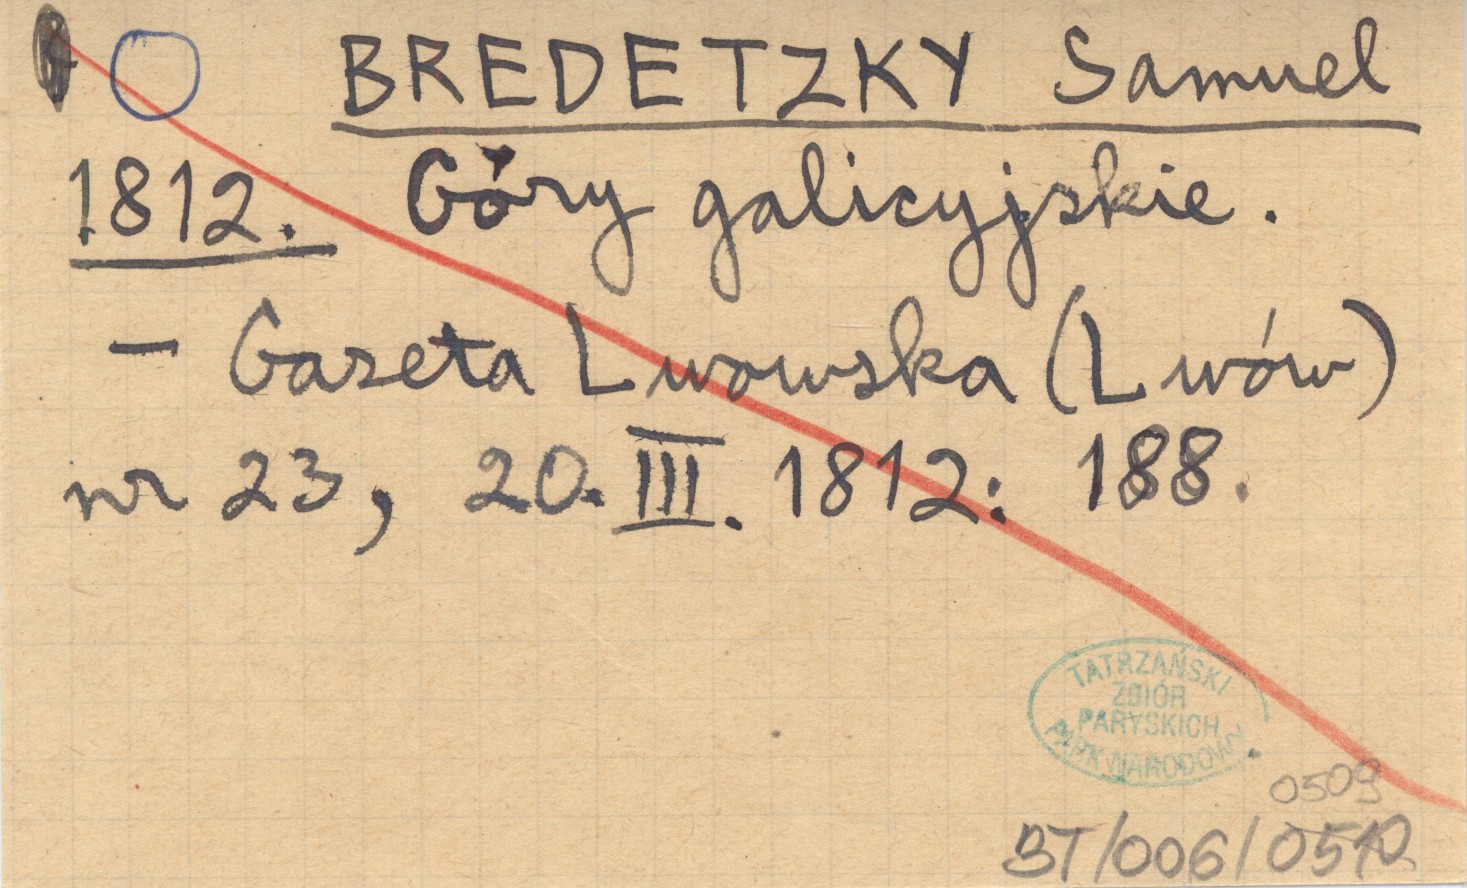 BREDETZKY Samuel
1812. Góry galicyjskie.
— Gazeta Lwowska (Lwów)
nr 23, 20.III.1812: 188.
TATRZAŃSKI
ZBIÓR
PARYSKICH
PARK NARODOWY
0509
BT/006/0510